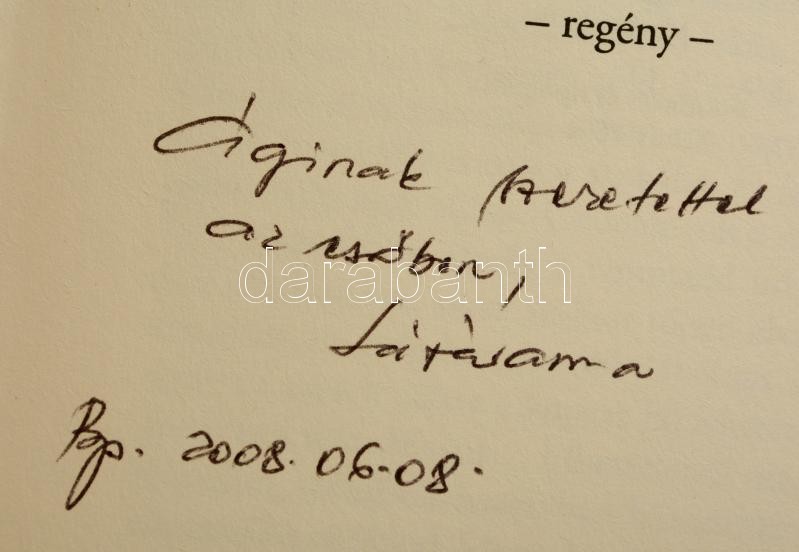 – regény –
Áginak szeretettel
az esőben,
darabanth
Bp. 2008. 06.08.